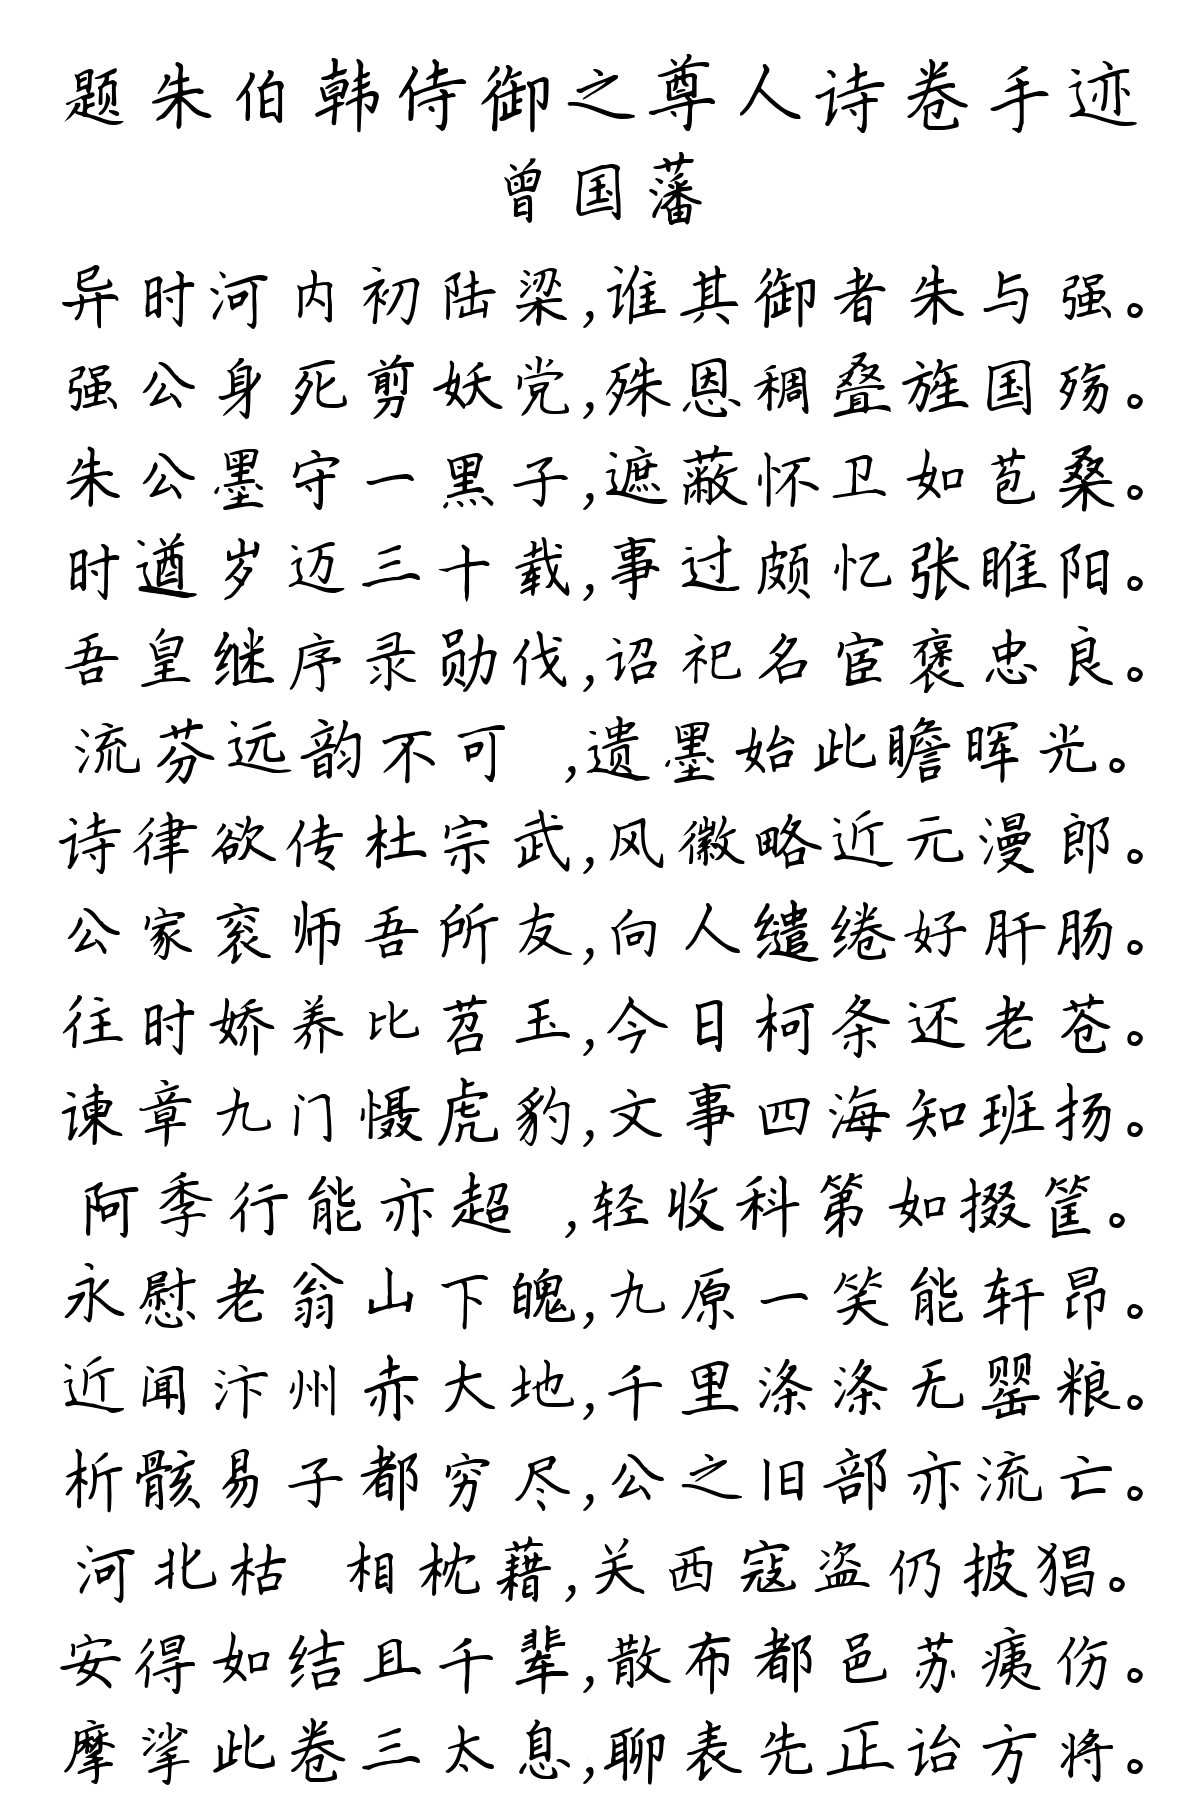 题朱伯韩侍御之尊人诗卷手迹
曾国藩
异时河内初陆梁,谁其御者朱与强。
强公身死剪妖党,殊恩稠叠旌国殇。
朱公墨守一黑子,遮蔽怀卫如苞桑。
时遒岁迈三十载,事过颇忆张睢阳。
吾皇继序录勋伐,诏祀名宦褒忠良。
流芬远韵不可 ,遗墨始此瞻晖光。
诗律欲传杜宗武,风徽略近元漫郎。
公家衮师吾所友,向人缱绻好肝肠。
往时娇养比苕玉,今日柯条还老苍。
谏章九门慑虎豹,文事四海知班扬。
阿季行能亦超 ,轻收科第如掇筐。
永慰老翁山下魄,九原一笑能轩昂。
近闻汴州赤大地,千里涤涤无罂粮。
析骸易子都穷尽,公之旧部亦流亡。
河北枯 相枕藉,关西寇盗仍披猖。
安得如结且千辈,散布都邑苏痍伤。
摩挲此卷三太息,聊表先正诒方将。